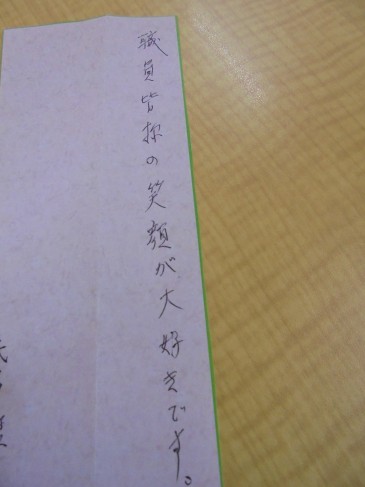 職員皆様の笑顔が大好きです。